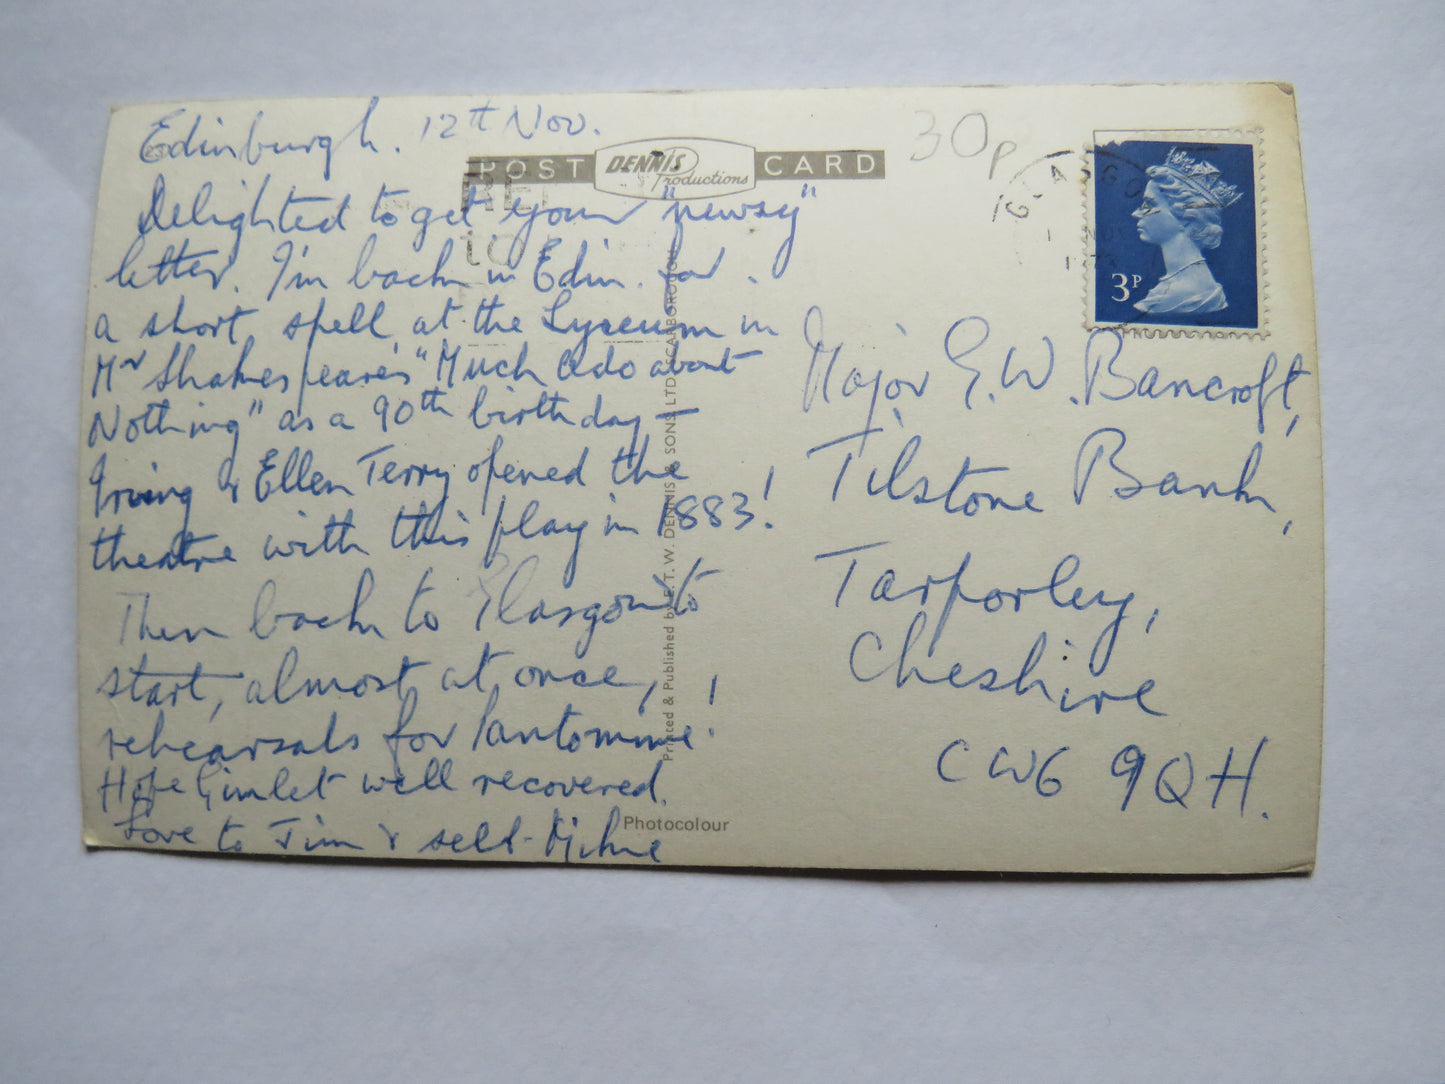 Edinburgh. 12th Nov.
Delighted to get your "newsy"
letter. I'm back in Edin. for
a short spell, at the Lyceum in
Mr Shakespeare's "Much Ado about
Nothing" as a 90th birthday –
Irving & Ellen Terry opened the
theatre with this play in 1883!
Then back to Glasgow to
start, almost at once,
rehearsals for Pantomime!
Hope Gimlet well recovered.
Love to Jim & self -
POST CARD
DENNIS
Productions
Printed & Published by E. T. W. DENNIS & SONS LTD SCARBOROUGH
Photocolour
30p
GLASGOW
3P
Major G. W. Bancroft,
Tilstone Bank,
Tarporley,
Cheshire
CW6 9QH.